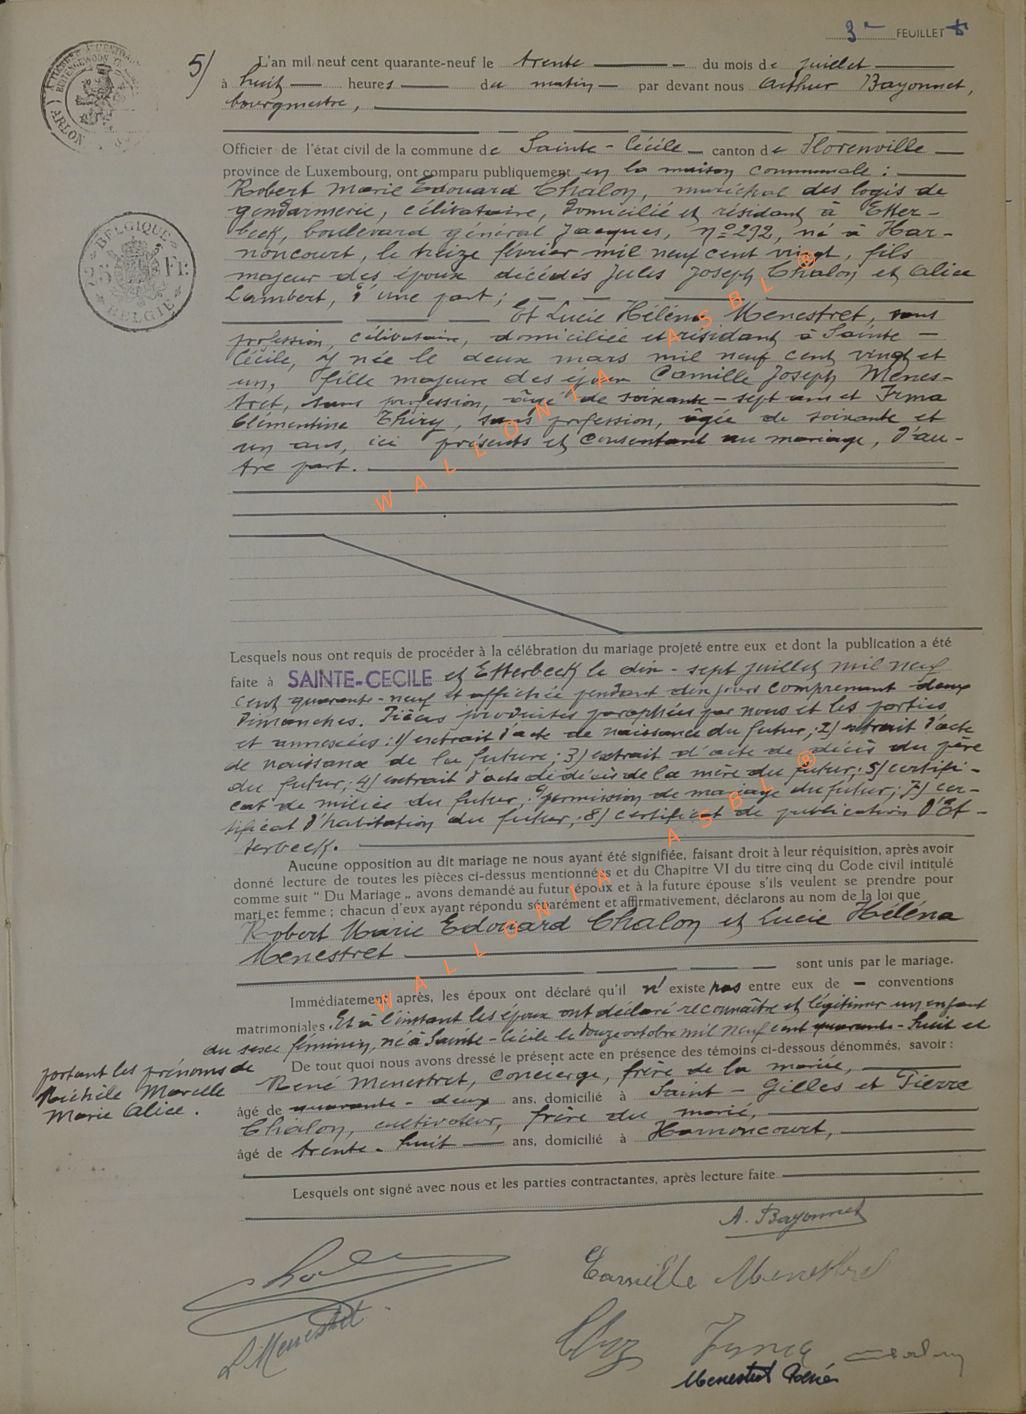 3e FEUILLET
5/
L'an mil neuf cent quarante-neuf le trente du mois de juillet
à huit heures du matin par devant nous Arthur Bayonnet,
bourgmestre,
Officier de l'état civil de la commune de Sainte-Cécile canton de Florenville
province de Luxembourg, ont comparu publiquement en la maison communale :
Robert Marie Edouard Chalon, maréchal des logis de
gendarmerie, célibataire, domicilié et résidant à Etter-
beek, boulevard général Jacques, No 292, né à Har-
noncourt, le treize février mil neuf cent vingt, fils
majeur des époux décédés Jules Joseph Chalon et Alice
Lambert, d'une part ;
Et Lucie Héléna Menestret, sans
profession, célibataire, domiciliée et résidant à Sainte-
Cécile, y née le deux mars mil neuf cent vingt et
un, fille majeure des époux Camille Joseph Menes-
tret, sans profession, âgé de soixante-sept ans et Irma
Clémentine Thiry, sans profession, âgée de soixante et
un ans, ici présents et consentant au mariage, d'au-
tre part.
WALLONIA ASBL ®
Lesquels nous ont requis de procéder à la célébration du mariage projeté entre eux et dont la publication a été
faite à SAINTE-CECILE et Etterbeek le dix-sept juillet mil neuf
cent quarante-neuf et affichée pendant dix jours comprenant deux
dimanches. Pièces produites paraphées par nous et les parties
et annexées : 1) extrait d'acte de naissance du futur ; 2) extrait d'acte
de naissance de la future ; 3) extrait d'acte de décès du père
du futur ; 4) extrait d'acte de décès de la mère du futur ; 5) certifi-
cat de milice du futur ; 6) permission de mariage du futur ; 7) cer-
tificat d'habitation du futur ; 8) certificat de publication d'Et-
terbeek.
Aucune opposition au dit mariage ne nous ayant été signifiée, faisant droit à leur réquisition, après avoir
donné lecture de toutes les pièces ci-dessus mentionnées et du Chapitre VI du titre cinq du Code civil intitulé
comme suit " Du Mariage „ avons demandé au futur époux et à la future épouse s'ils veulent se prendre pour
mari et femme ; chacun d'eux ayant répondu séparément et affirmativement, déclarons au nom de la loi que
Robert Marie Edouard Chalon et Lucie Héléna
Menestret
sont unis par le mariage.
WALLONIA ASBL ®
Immédiatement après, les époux ont déclaré qu'il n'existe pas entre eux de conventions
matrimoniales. Et à l'instant les époux ont déclaré reconnaître et légitimer un enfant
du sexe féminin, né à Sainte-Cécile le douze octobre mil neuf cent quarante-huit et
portant les prénoms de
Michèle Marcelle
Marie Alice.
De tout quoi nous avons dressé le présent acte en présence des témoins ci-dessous dénommés, savoir :
René Menestret, concierge, frère de la mariée,
âgé de quarante-deux ans, domicilié à Saint-Gilles et Pierre
Chalon, cultivateur, frère du marié,
âgé de trente-huit ans, domicilié à Harnoncourt,
Lesquels ont signé avec nous et les parties contractantes, après lecture faite
A. Bayonnet
Camille Menestret
L Menestret
Irma
Menestret René
BELGIQUE
3 Fr.
BELGIE
ARLON